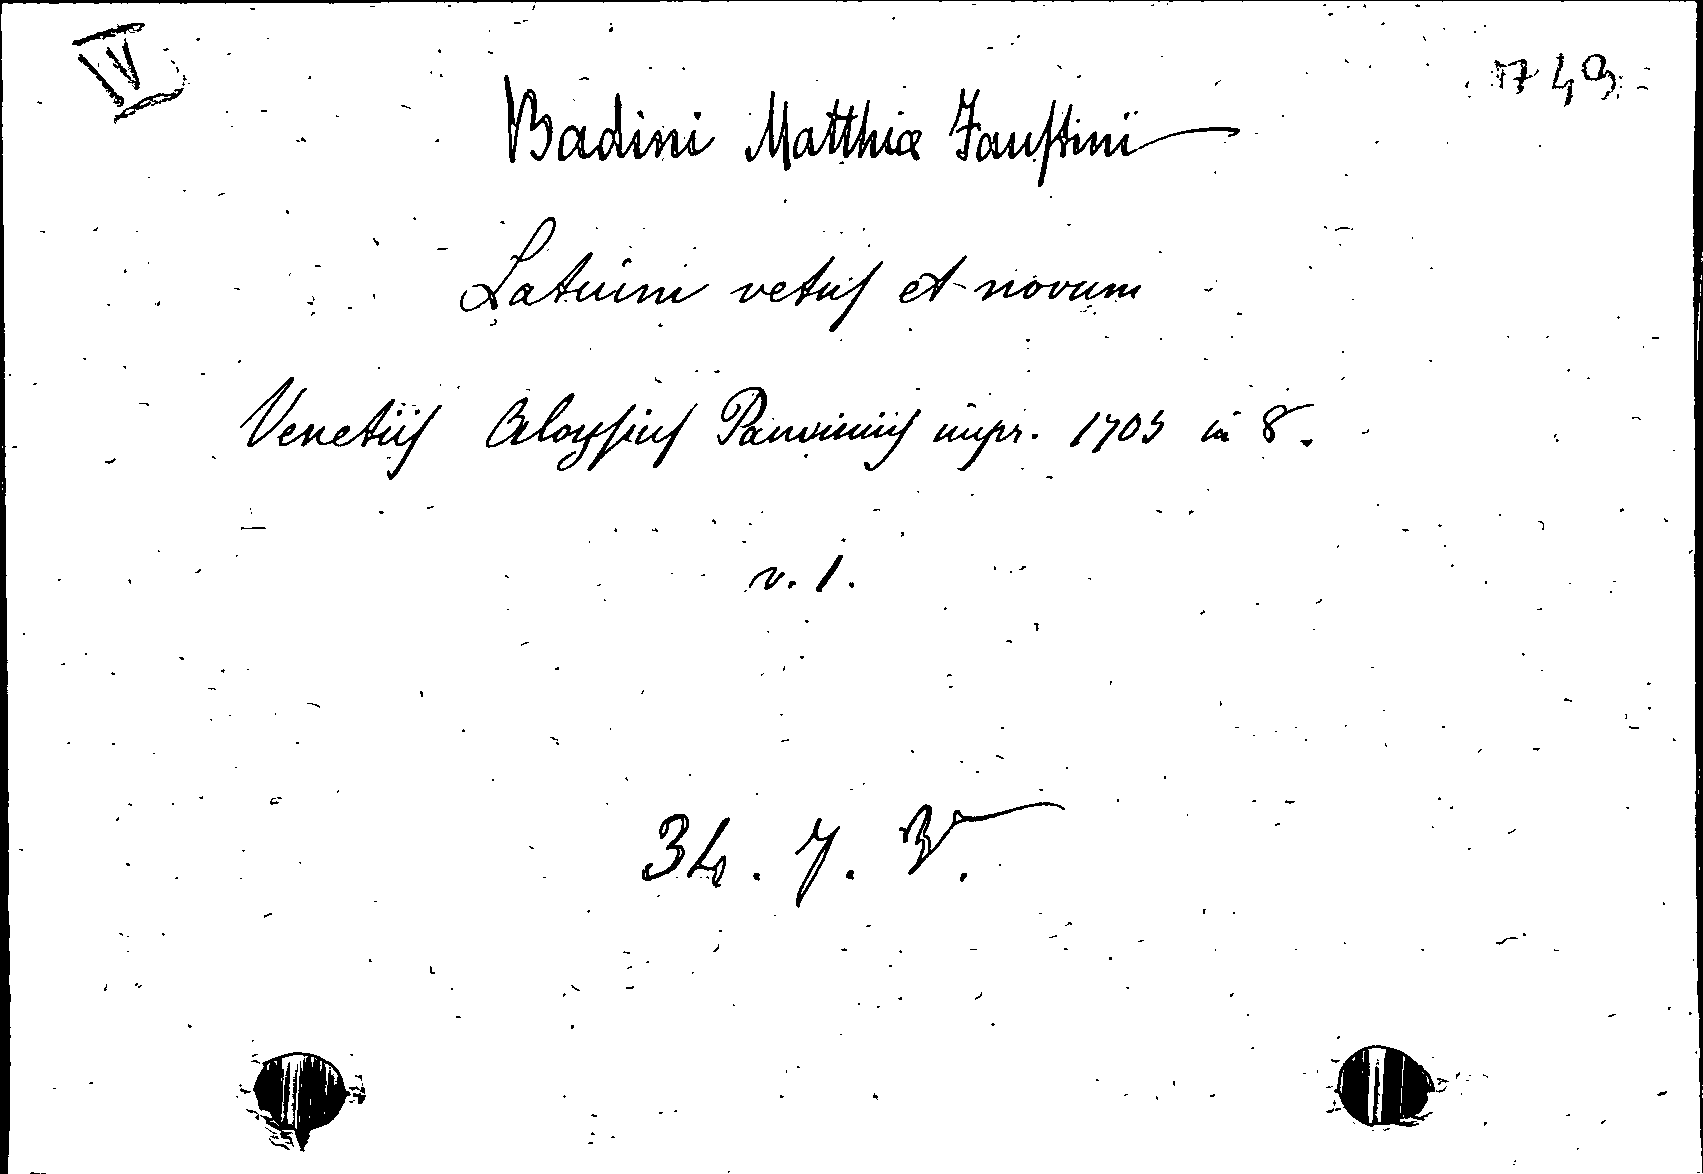 IV
1749
Badini Matthiæ Faustini
Latium vetus et novum
Venetiis Aloysius Pavinius impr. 1705 in 8.
v. 1.
34. 7.